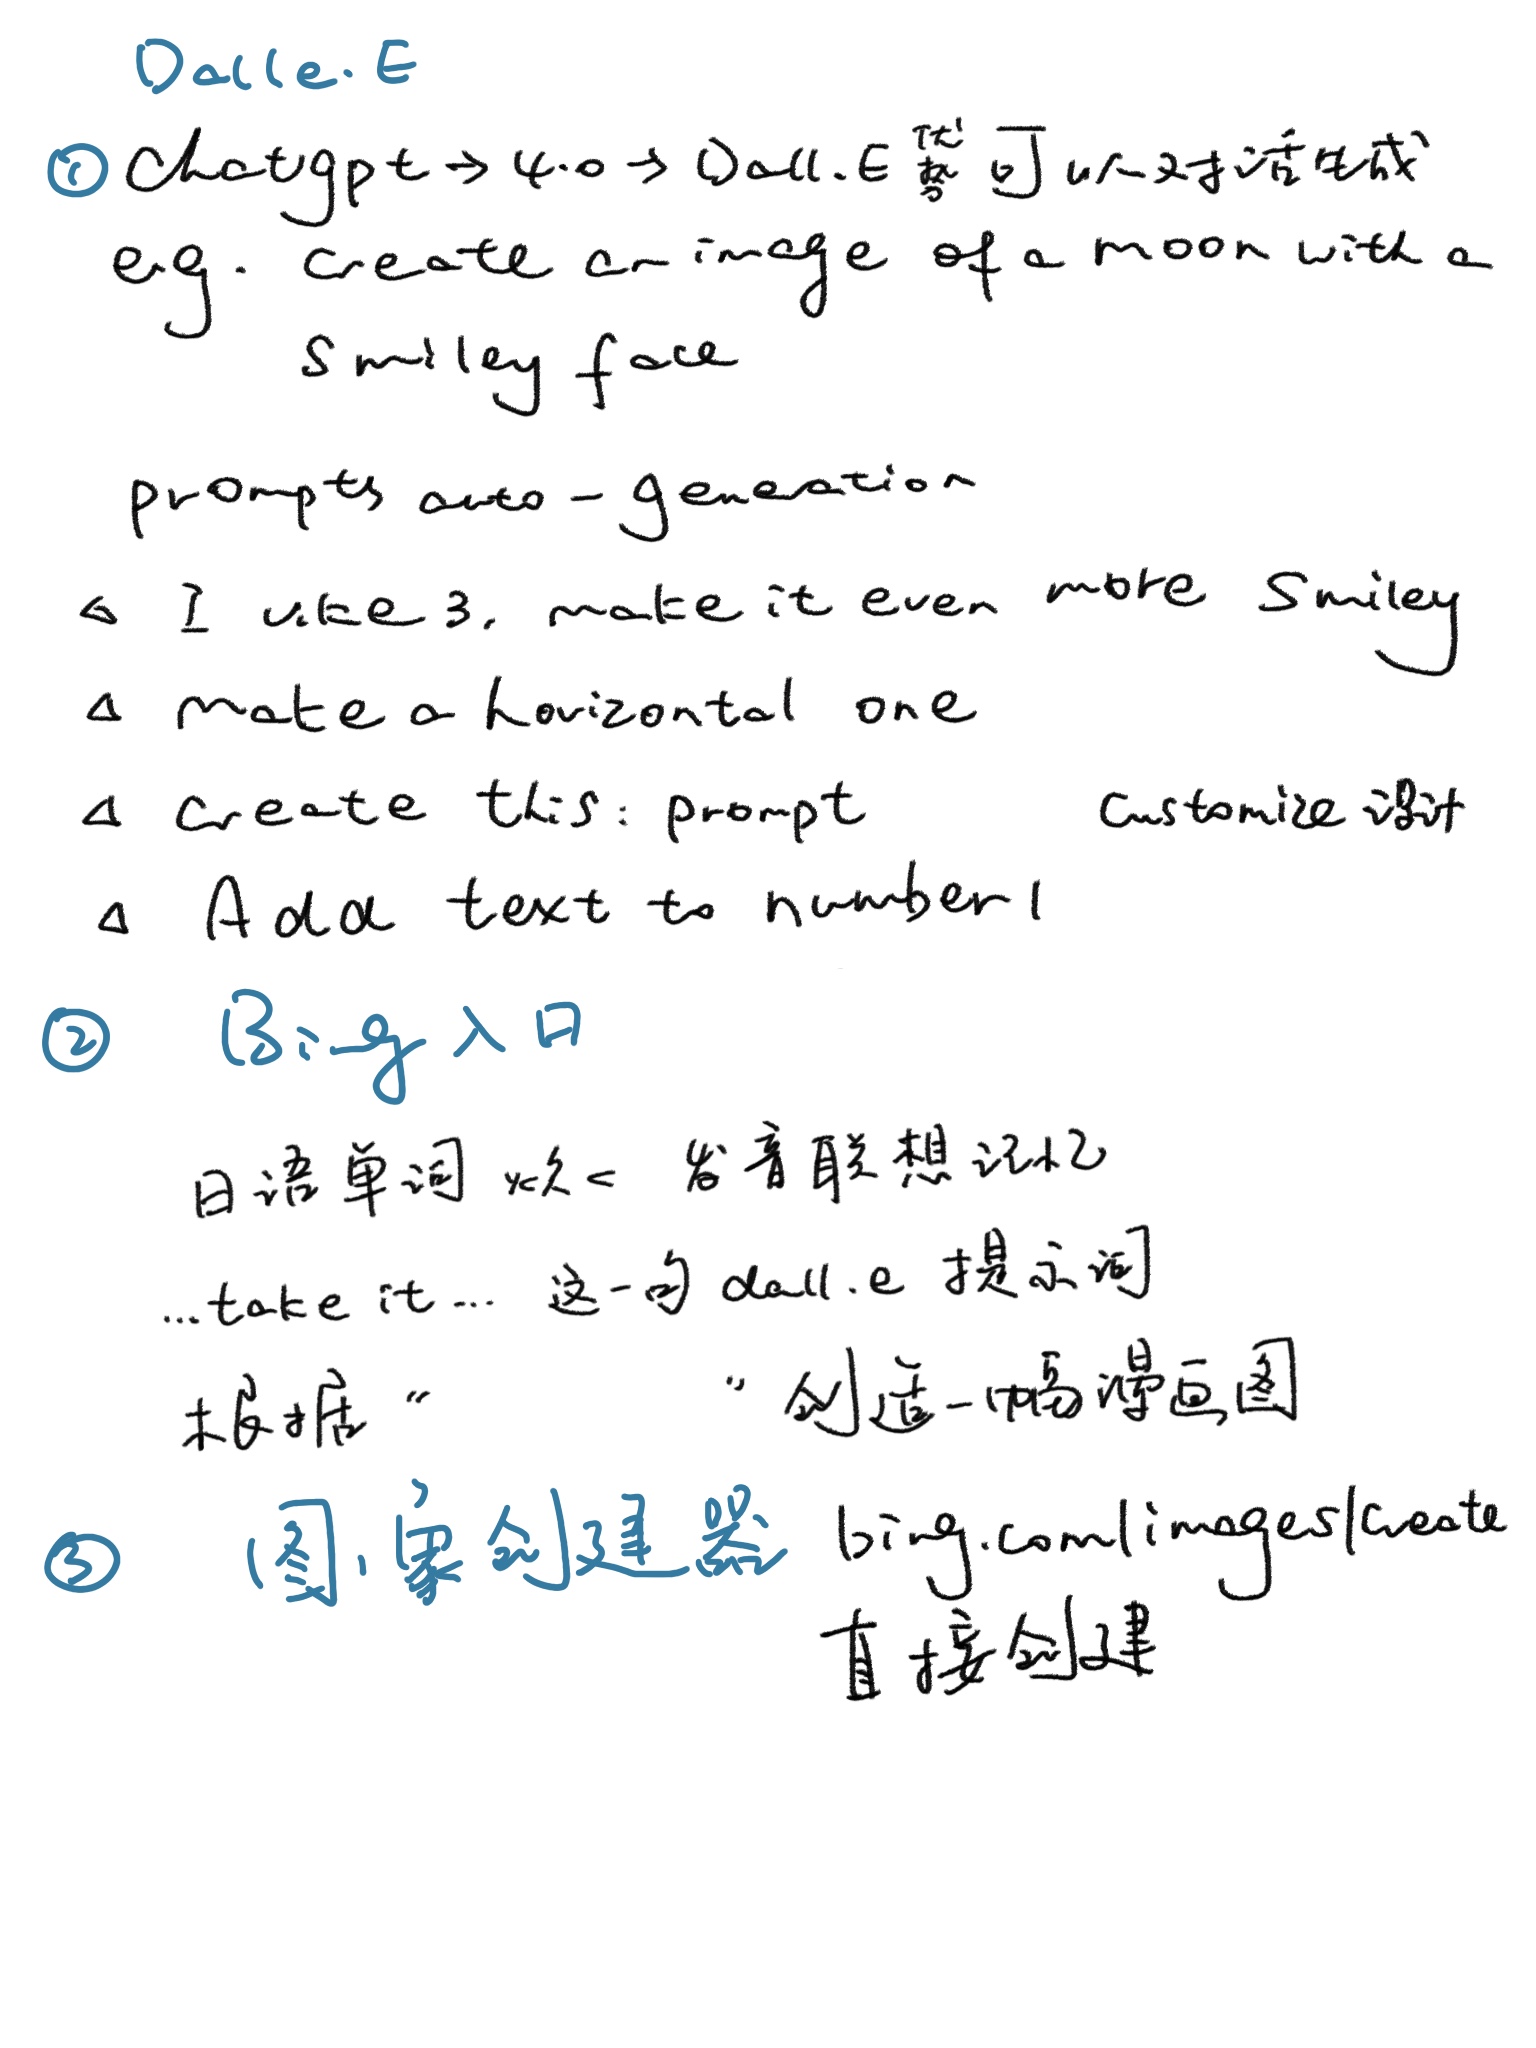 Dalle.E
① Chatgpt → 4.0 → Dall.E 优势 可以对话生成
e.g. create an image of a moon with a
smiley face
prompts auto-generation
△ I like 3. make it even more smiley
△ make a horizontal one
△ create this: prompt Customize 设计
△ Add text to number 1
② Bing 入口
日语单词 发音联想记忆
...take it... 这一句 dall.e 提示词
根据 “ ” 创造一幅漫画图
③ 图象创建器 bing.com/images/create
直接创建